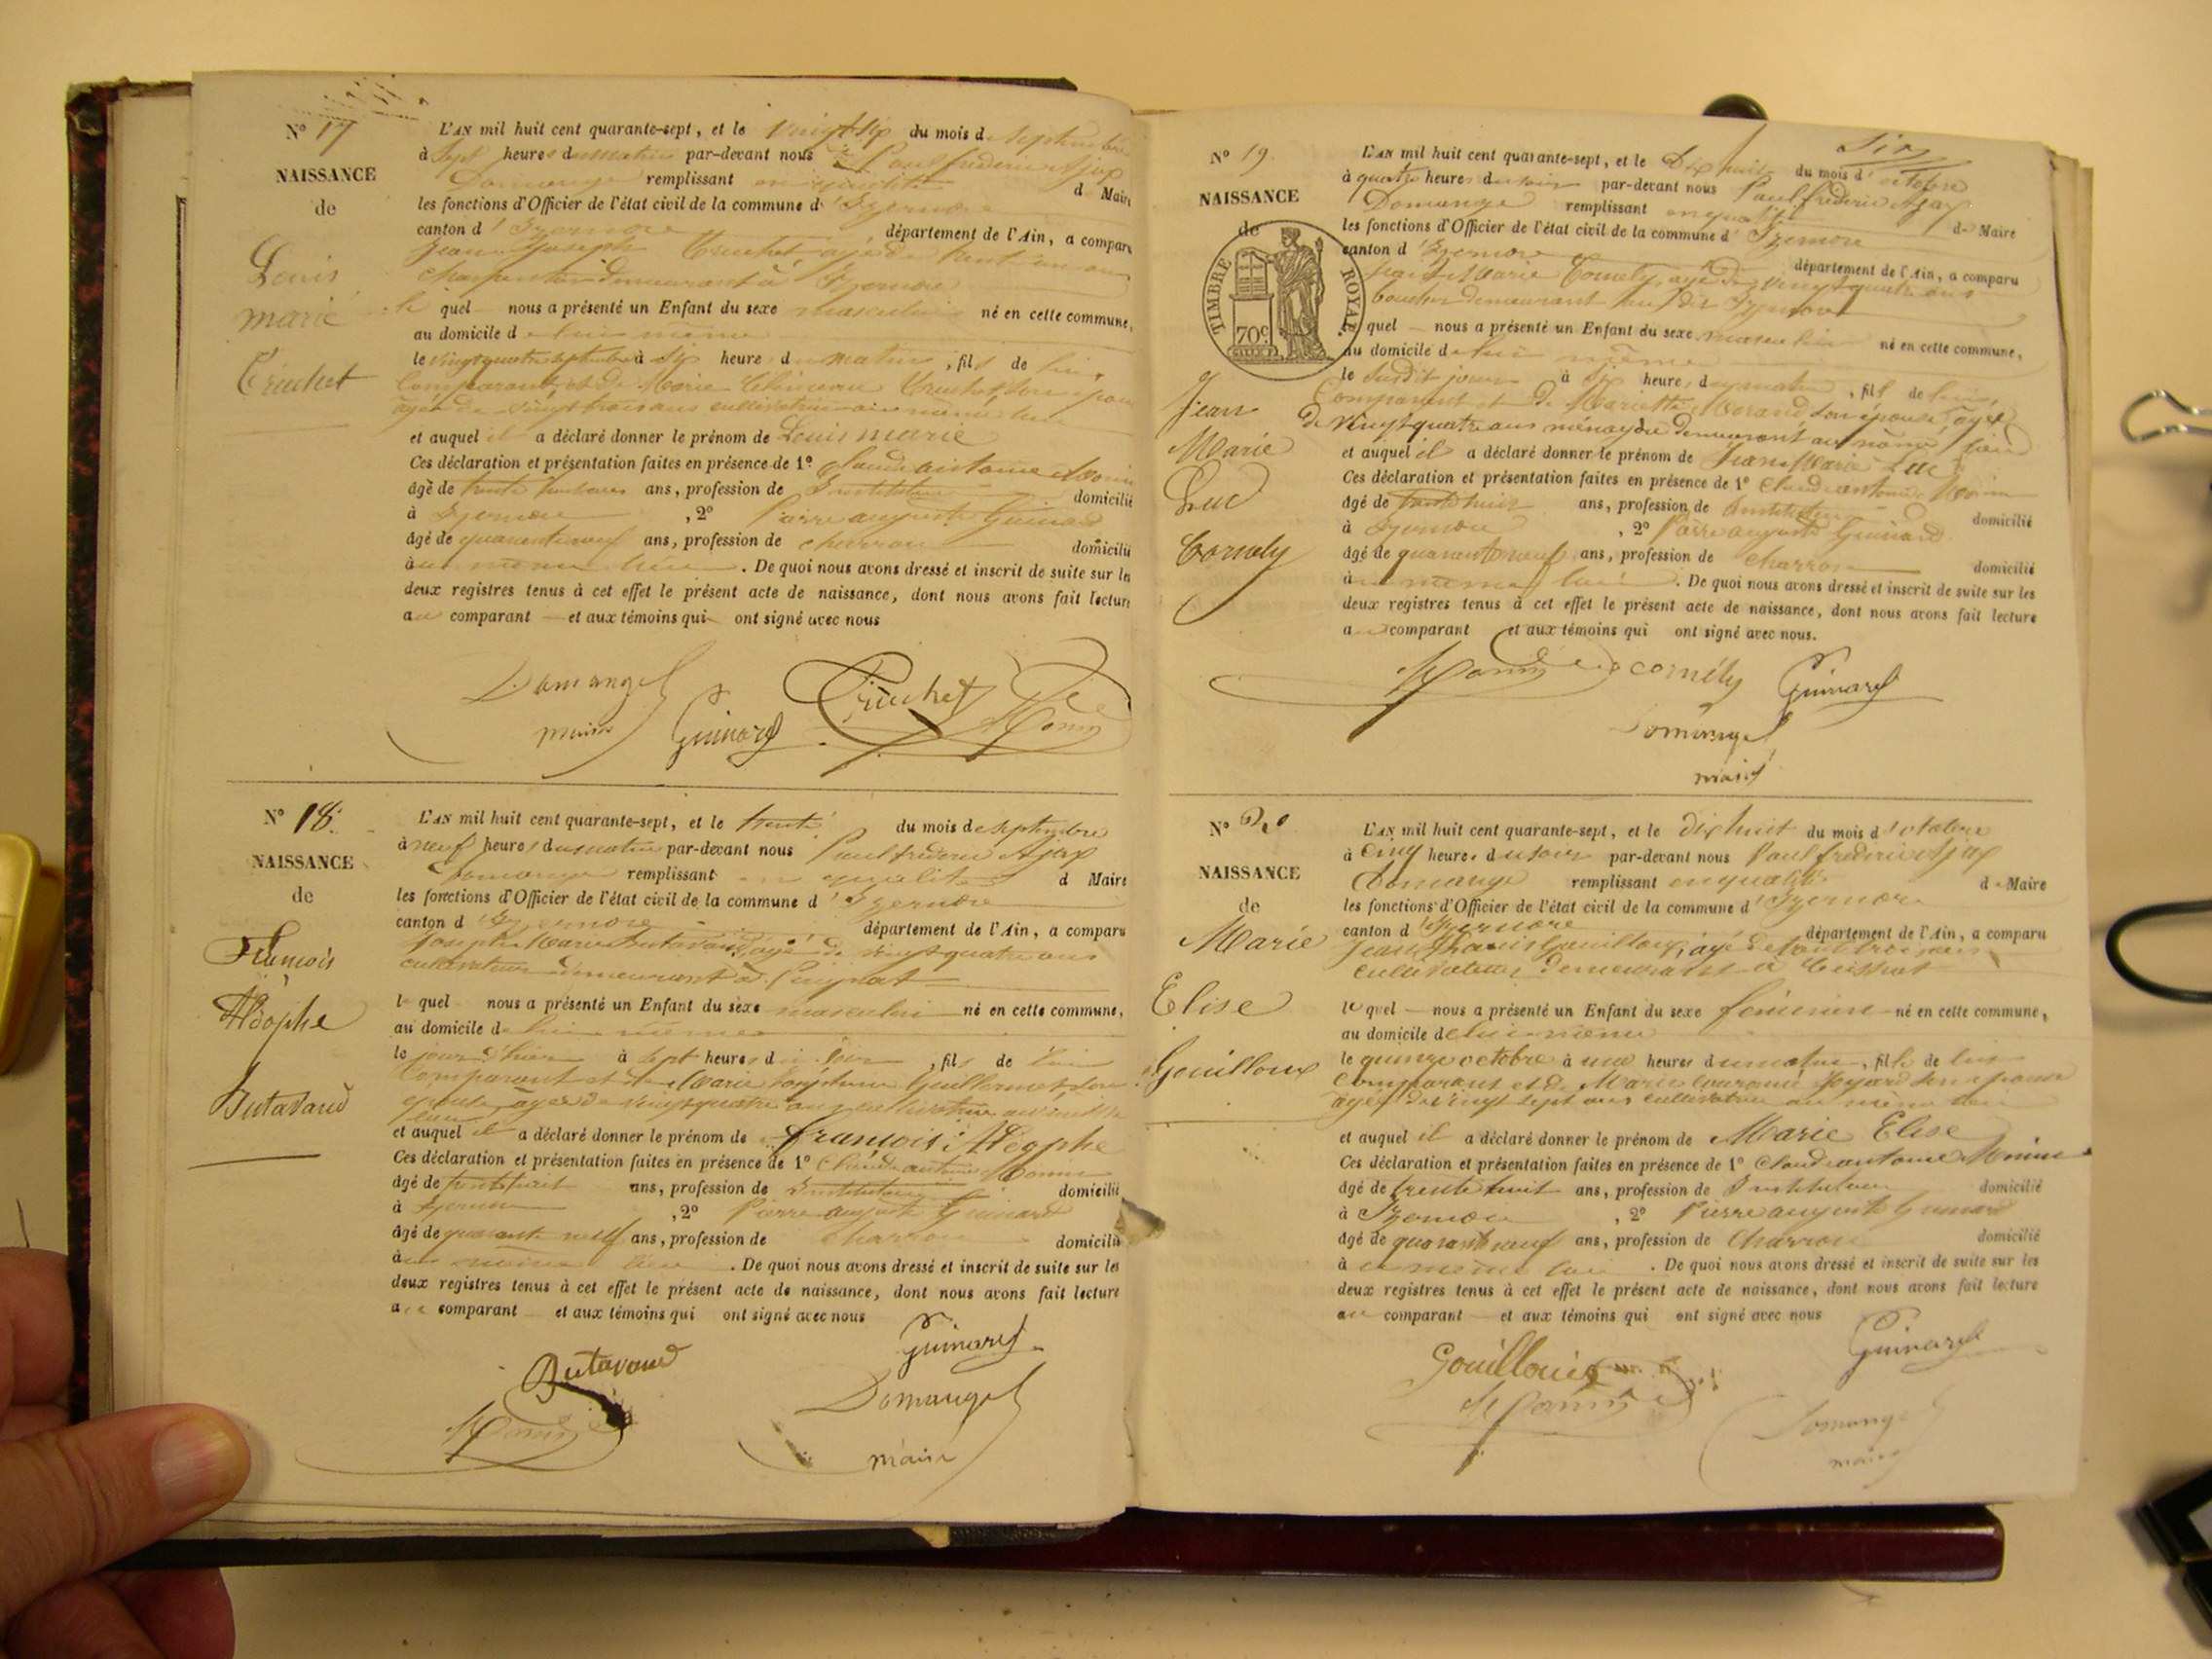 N° 17
NAISSANCE
de
Louis
marie
Truchet
L'AN mil huit cent quarante-sept, et le vingt six du mois de septembre
à sept heures du matin par-devant nous Paul frederic Ajax
Domange remplissant en qualité de Maire
les fonctions d'Officier de l'état civil de la commune d'Izernore
canton d'Izernore, département de l'Ain, a comparu
Jean Joseph Truchet, âgé de trent'un ans
charpentier demeurant à Izernore
le quel nous a présenté un Enfant du sexe masculin né en cette commune,
au domicile de lui même
le vingt quatre septembre à six heures du matin, fils de lui
comparant, et de Marie Truchet, son épouse
âgée de vingt trois ans cultivatrice au même lieu
et auquel il a déclaré donner le prénom de Louis marie
Ces déclaration et présentation faites en présence de 1° Claude antoine Monin
âgé de trente huit ans, profession de Instituteur domicilié
à Izernore, 2° Pierre auguste Guinard
âgé de quarante neuf ans, profession de charron domicilié
au même lieu. De quoi nous avons dressé et inscrit de suite sur les
deux registres tenus à cet effet le présent acte de naissance, dont nous avons fait lecture
au comparant et aux témoins qui ont signé avec nous
Domange
maire Guinard Truchet Monin
N° 18.
NAISSANCE
de
François
Butavand
L'AN mil huit cent quarante-sept, et le trente du mois de septembre
à neuf heures du matin par-devant nous Paul frederic Ajax
Domange remplissant en qualité de Maire
les fonctions d'Officier de l'état civil de la commune d'Izernore
canton d'Izernore département de l'Ain, a comparu
Joseph Marie Butavand, âgé de vingt quatre ans
cultivateur demeurant à Ceignat
le quel nous a présenté un Enfant du sexe masculin né en cette commune,
au domicile de lui même
le jour d'hier à sept heures du soir, fils de lui
comparant et de Marie Joséphine Guillermet, son
épouse, âgée de vingt quatre ans cultivatrice au même
lieu
et auquel il a déclaré donner le prénom de françois
Ces déclaration et présentation faites en présence de 1° Claude antoine Monin
âgé de trente huit ans, profession de Instituteur domicilié
à Izernore, 2° Pierre auguste Guinard
âgé de quarante neuf ans, profession de Charron domicilié
au même lieu. De quoi nous avons dressé et inscrit de suite sur les
deux registres tenus à cet effet le présent acte de naissance, dont nous avons fait lecture
au comparant et aux témoins qui ont signé avec nous
Butavand Guinard
Monin Domange
maire
Six
N° 19.
NAISSANCE
de
TIMBRE ROYAL
70c
Jean
Marie
Luc
Cornely
L'AN mil huit cent quarante-sept, et le Dix huit du mois d'octobre
à quatre heures du soir par-devant nous Paul frederic Ajax
Domange remplissant en qualité de Maire
les fonctions d'Officier de l'état civil de la commune d'Izernore
canton d'Izernore département de l'Ain, a comparu
Jean Marie Cornely, âgé de vingt quatre ans
boucher demeurant au dit Izernore
quel nous a présenté un Enfant du sexe masculin né en cette commune,
au domicile de lui même
le susdit jour à six heures du matin, fils de lui,
Comparant et de Mariette Morand son épouse, âgée
de vingt quatre ans ménagère demeurant au même lieu
et auquel il a déclaré donner le prénom de Jean Marie Luc
Ces déclaration et présentation faites en présence de 1° Claude antoine Monin
âgé de trente huit ans, profession de Instituteur domicilié
à Izernore, 2° Pierre auguste Guinard
âgé de quarante neuf ans, profession de Charron domicilié
au même lieu. De quoi nous avons dressé et inscrit de suite sur les
deux registres tenus à cet effet le présent acte de naissance, dont nous avons fait lecture
au comparant et aux témoins qui ont signé avec nous.
Monin cornély Guinard
Domange
maire
N° 20
NAISSANCE
de
Marie
Elise
Gouilloux
L'AN mil huit cent quarante-sept, et le dix huit du mois d'octobre
à cinq heures du soir par-devant nous Paul frederic Ajax
Domange remplissant en qualité de Maire
les fonctions d'Officier de l'état civil de la commune d'Izernore
canton d'Izernore département de l'Ain, a comparu
Jean Gouilloux, âgé de trent trois ans
cultivateur demeurant à Tessiat
le quel nous a présenté un Enfant du sexe féminin né en cette commune,
au domicile de lui même
le quinze octobre à une heures du matin, fille de lui
comparant et de Marie Joyard son épouse
âgée de vingt sept ans cultivatrice au même lieu
et auquel il a déclaré donner le prénom de Marie Elise
Ces déclaration et présentation faites en présence de 1° Claude antoine Monin
âgé de trente huit ans, profession de Instituteur domicilié
à Izernore, 2° Pierre auguste Guinard
âgé de quarante neuf ans, profession de Charron domicilié
à même lieu. De quoi nous avons dressé et inscrit de suite sur les
deux registres tenus à cet effet le présent acte de naissance, dont nous avons fait lecture
au comparant et aux témoins qui ont signé avec nous
Gouilloux Guinard
Monin Domange
maire